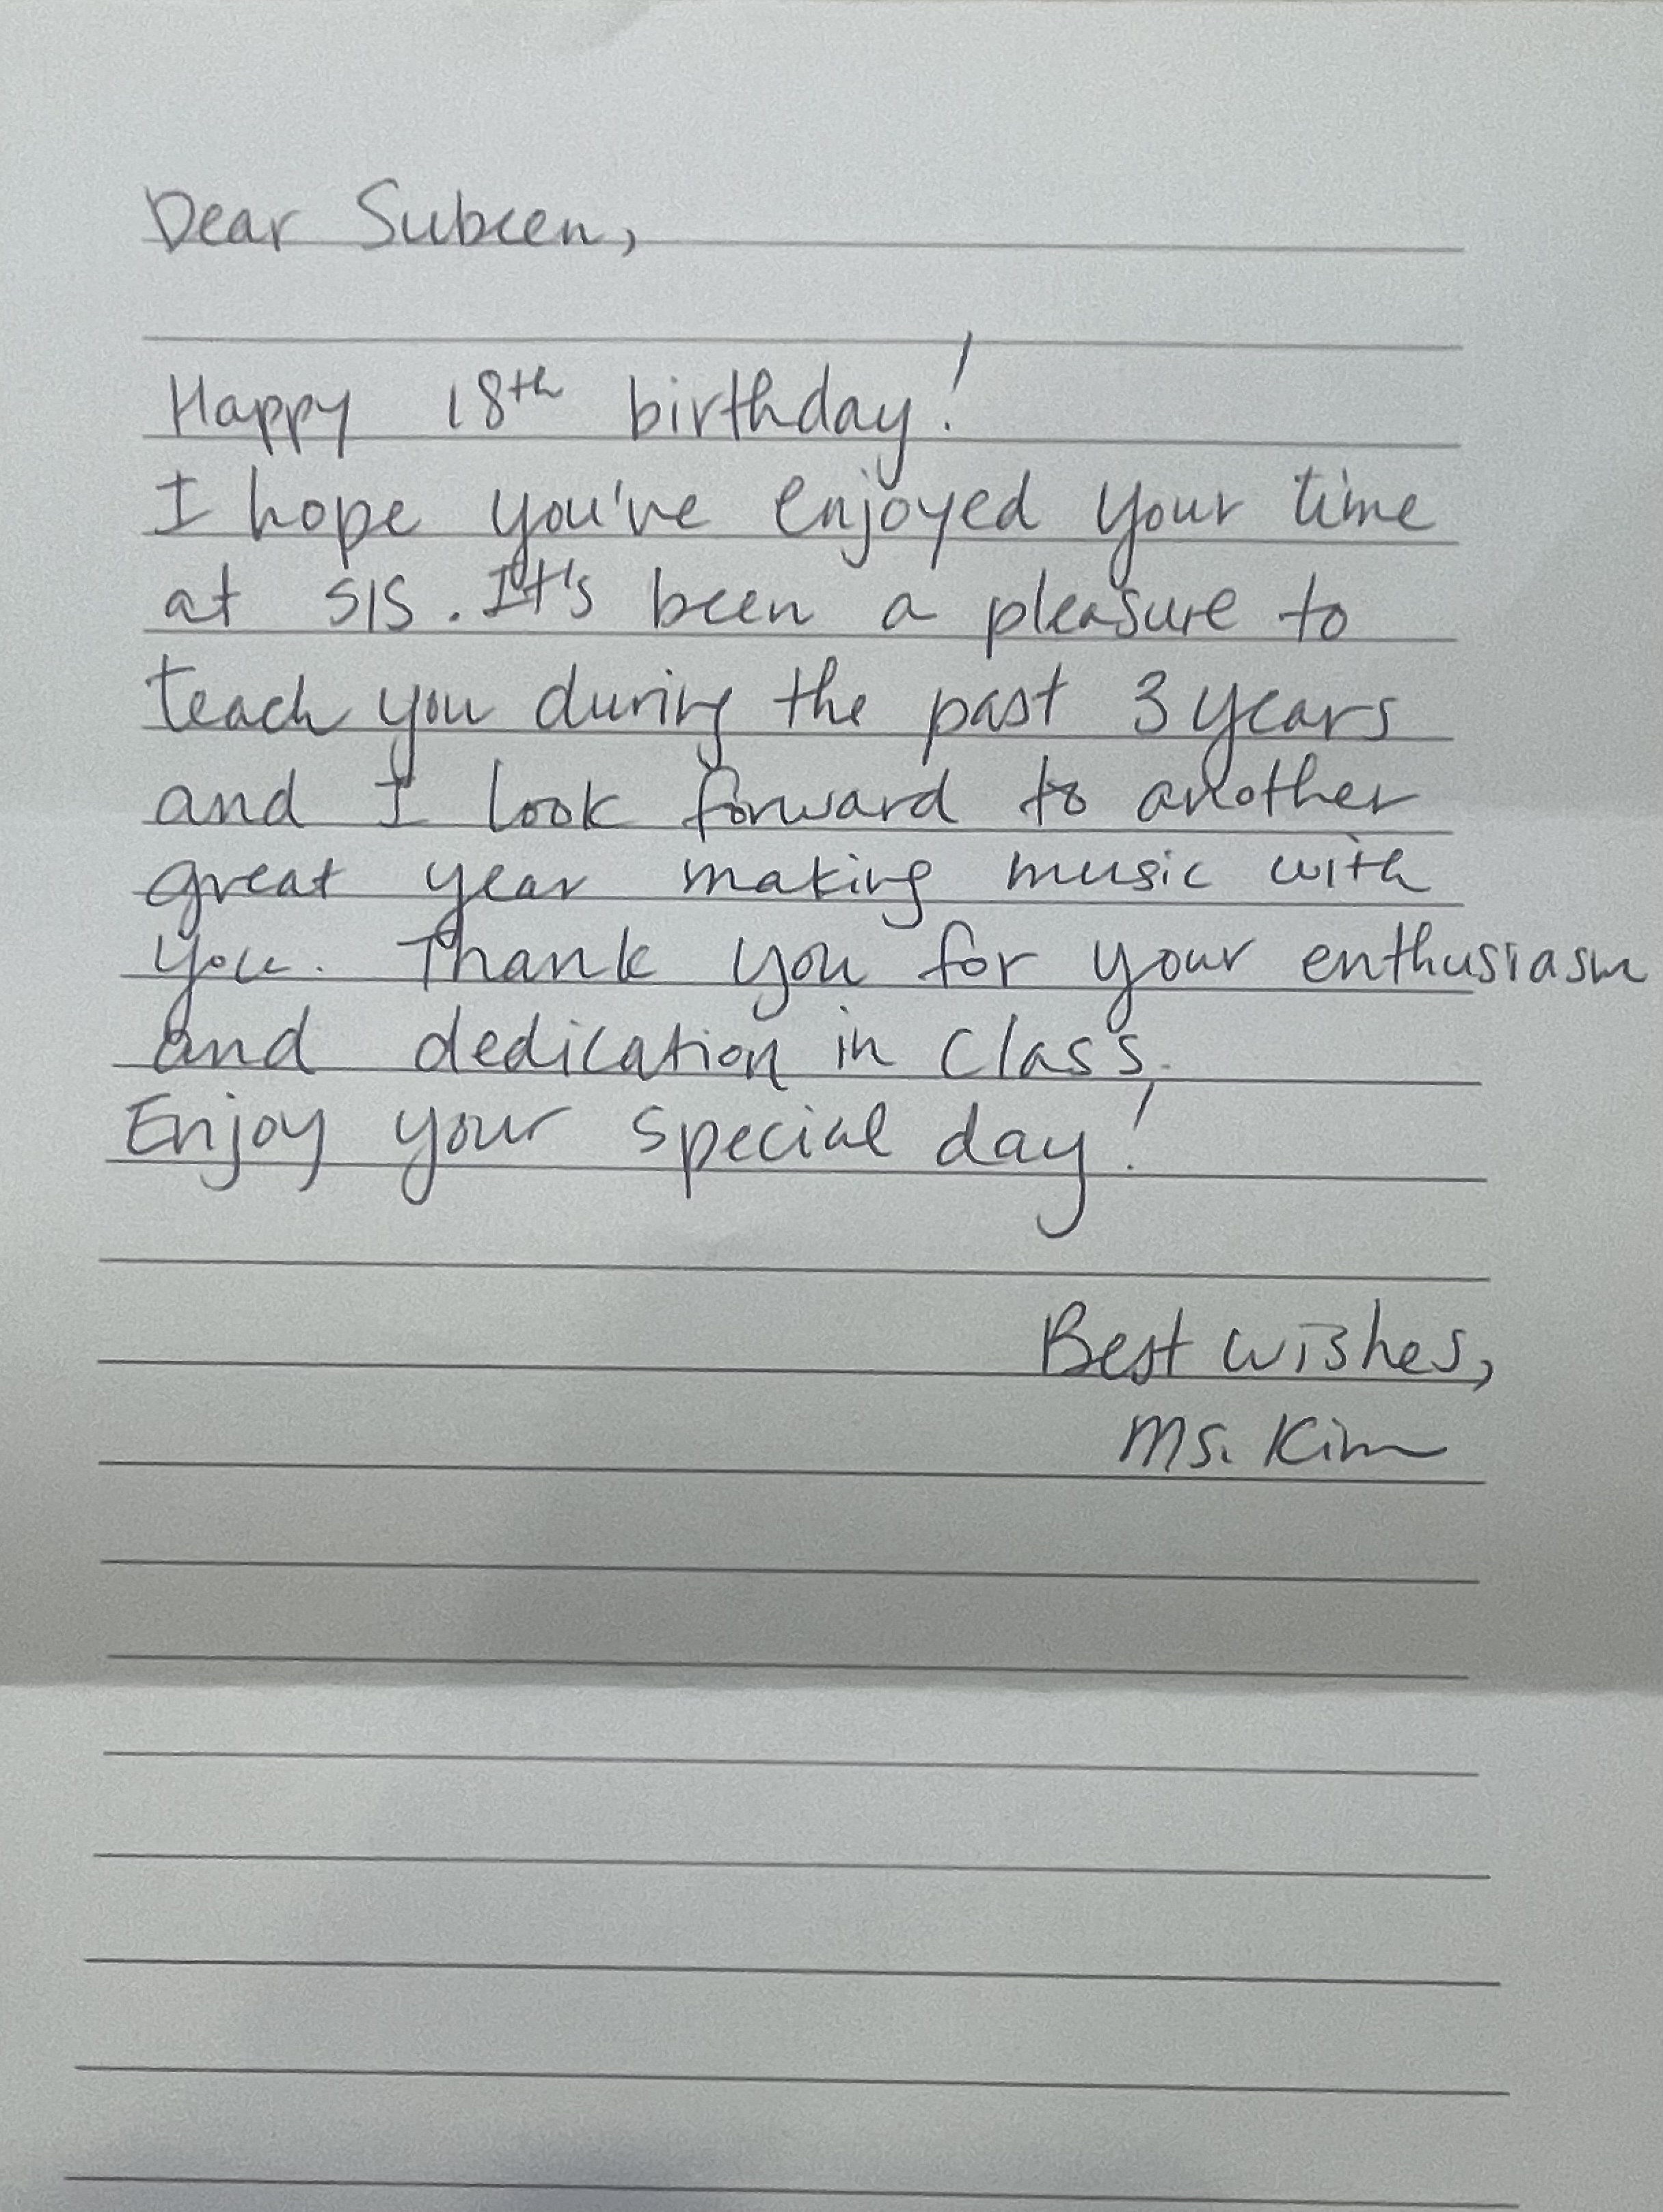 Dear Subeen,
Happy 18th birthday!
I hope you've enjoyed your time
at SIS. It's been a pleasure to
teach you during the past 3 years
and I look forward to another
great year making music with
you. Thank you for your enthusiasm
and dedication in class.
Enjoy your special day!
Best wishes,
Ms. Kim